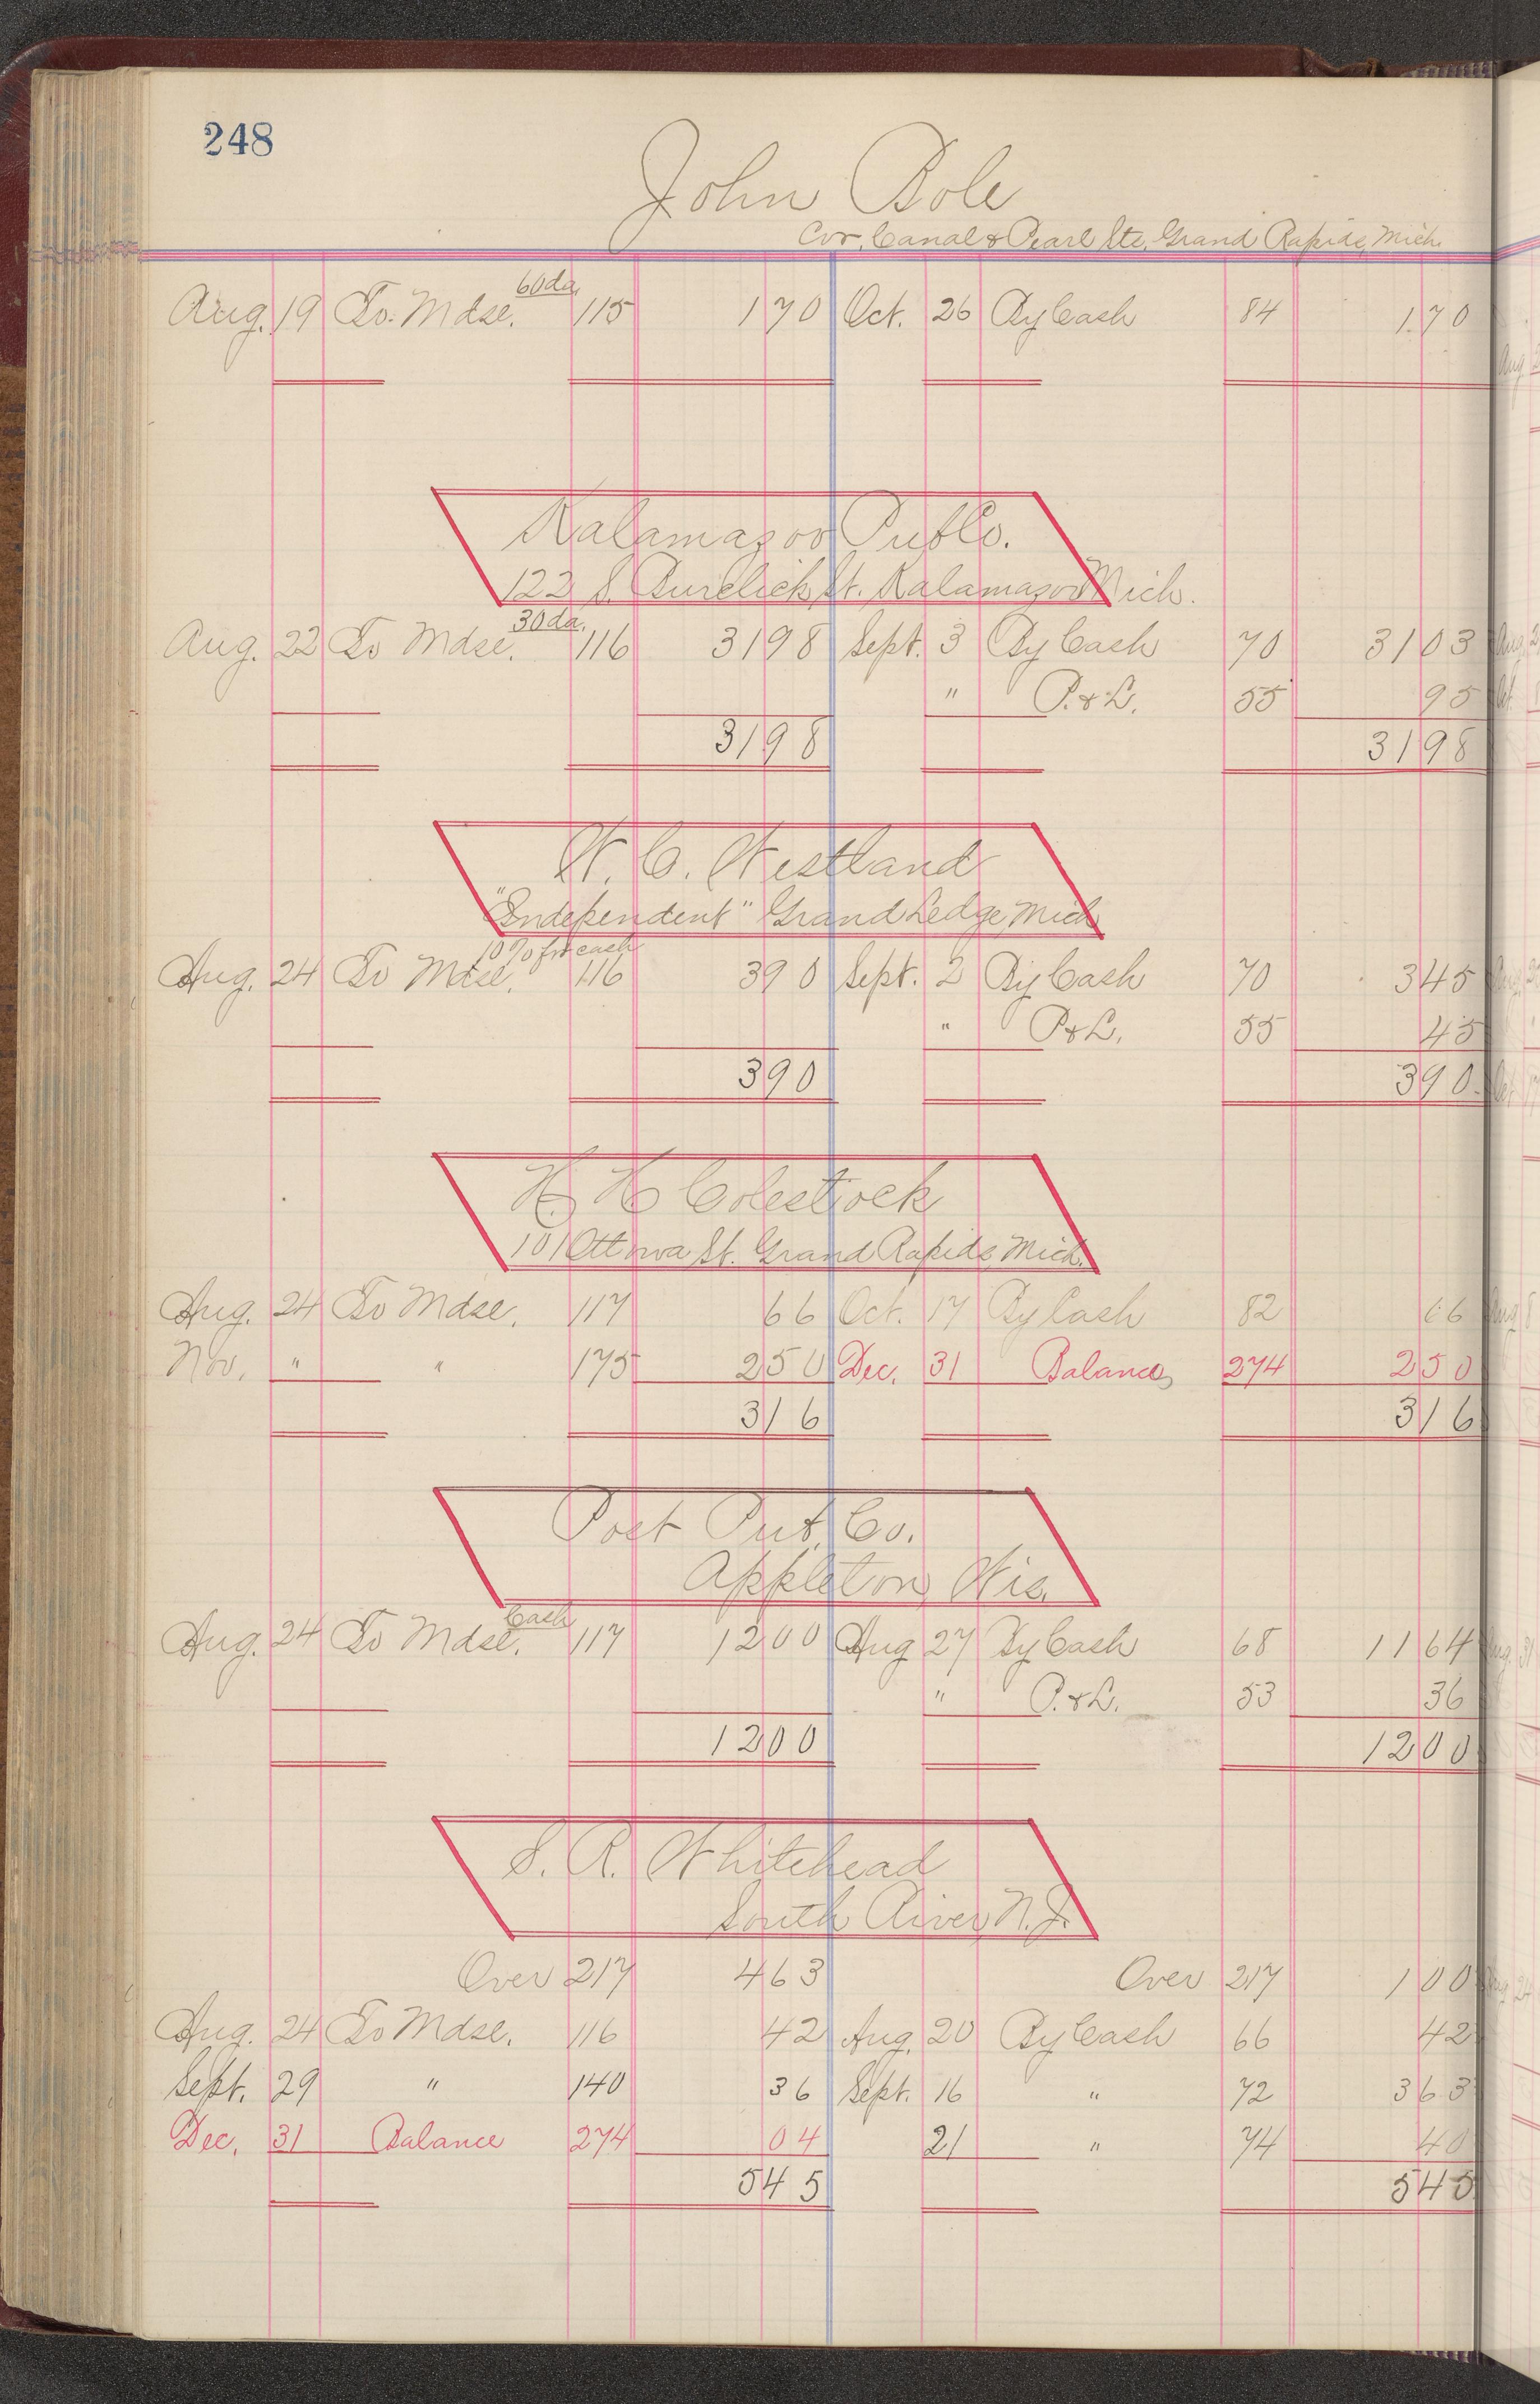 248
John Bole
Cor. Canal & Pearl Sts. Grand Rapids, Mich.
60da.
Aug. 19 To Mdse. 115 1 70 Oct. 26 By Cash 84 1 70
Kalamazoo Pub Co.
122 S. Burdick St. Kalamazoo Mich.
30da.
Aug. 22 To Mdse. 116 31 98 Sept. 3 By Cash 70 31 03
" P. & L. 55 95
31 98 31 98
W. C. Westland
"Independent" Grand Ledge, Mich
10% for cash
Aug. 24 To Mdse. 116 3 90 Sept. 2 By Cash 70 3 45
" P & L. 55 45
3 90 3 90
H. H. Colestock
101 Ottowa St. Grand Rapids, Mich.
Aug. 24 To Mdse. 117 66 Oct. 17 By Cash 82 66
Nov. " " 175 2 50 Dec. 31 Balance 274 2 50
3 16 3 16
Post Pub. Co.
Appleton, Wis.
Cash
Aug. 24 To Mdse. 117 12 00 Aug 27 By Cash 68 11 64
" P. & L. 53 36
12 00 12 00
S. R. Whitehead
South River, N. J.
Over 217 4 63 Over 217 1 00
Aug. 24 To Mdse. 116 42 Aug. 20 By Cash 66 42
Sept. 29 " 140 36 Sept. 16 " 72 3 63
Dec. 31 Balance 274 04 21 " 74 40
5 45 5 45